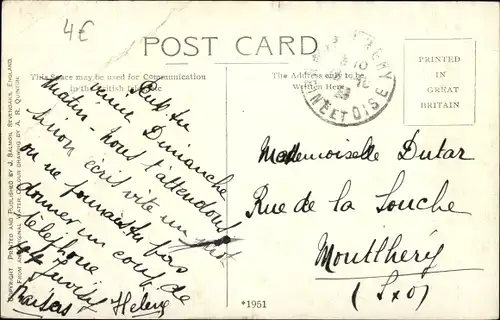 4€
POST CARD
This Space may be used for Communication
in the British Isles
The Address only to be
Written Here
PRINTED
IN
GREAT
BRITAIN
SEINE ET OISE
COPYRIGHT. PRINTED AND PUBLISHED BY J. SALMON, SEVENOAKS, ENGLAND.
FROM AN ORIGINAL WATER COLOUR DRAWING BY A. R. QUINTON.
Peux tu
venir Dimanche
matin - nous t'attendons
sinon écris vite un mot
ou ne pourrais tu pas
donner un coup de
téléphone
Juvisy
Baisers Helene
Mademoiselle Dutar
Rue de la Souche
Montlhéry
(SxO)
*1951